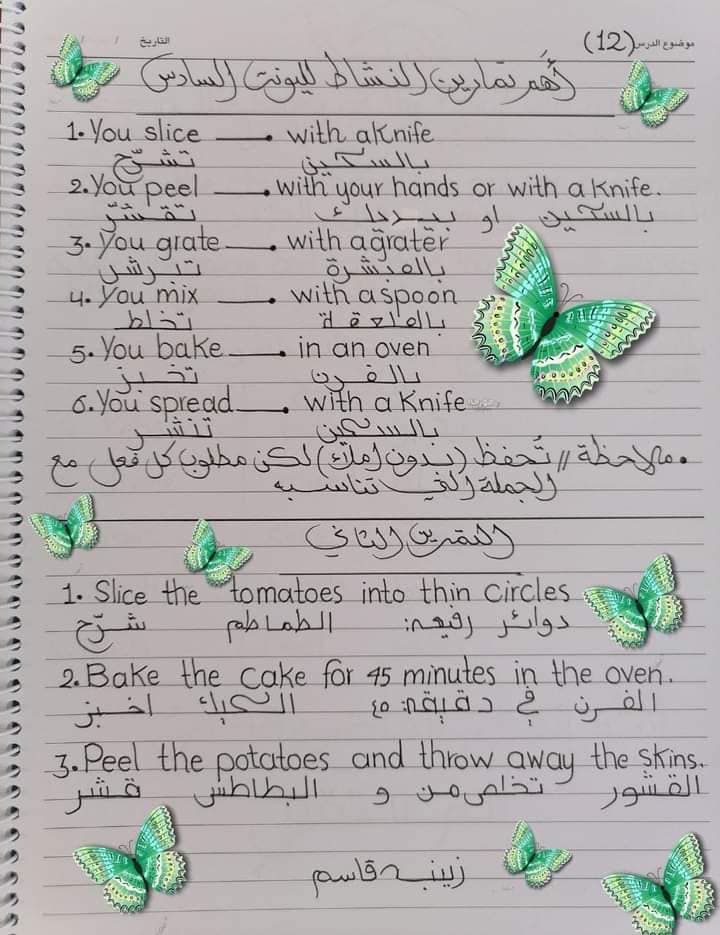 التاريخ / /
موضوع الدرس (12)
أهم تمارين النشاط لليونت السادس
1. You slice ____. with a Knife
تشرّح بالسكين
2. You peel ____. with your hands or with a Knife.
تقشّر بيديك او بالسكين
3. You grate ____. with a grater
تبرش بالمبشرة
4. You mix ____. with a spoon
تخلط بالملعقة
5. You bake ____. in an oven
تخبز بالفرن
6. You spread ____. with a Knife
تنشر بالسكين
• ملاحظة // تُحفظ (بدون املاء) لكن مطلوب كل فعل مع
الجملة التي تناسبه
التمرين الثاني
1. Slice the tomatoes into thin circles
شرّح الطماطم دوائر رفيعة:
2. Bake the cake for 45 minutes in the oven.
اخبز الكيك ٤٥ دقيقة في الفرن
3. Peel the potatoes and throw away the skins.
قشر البطاطس و تخلص من القشور
زينب قاسم